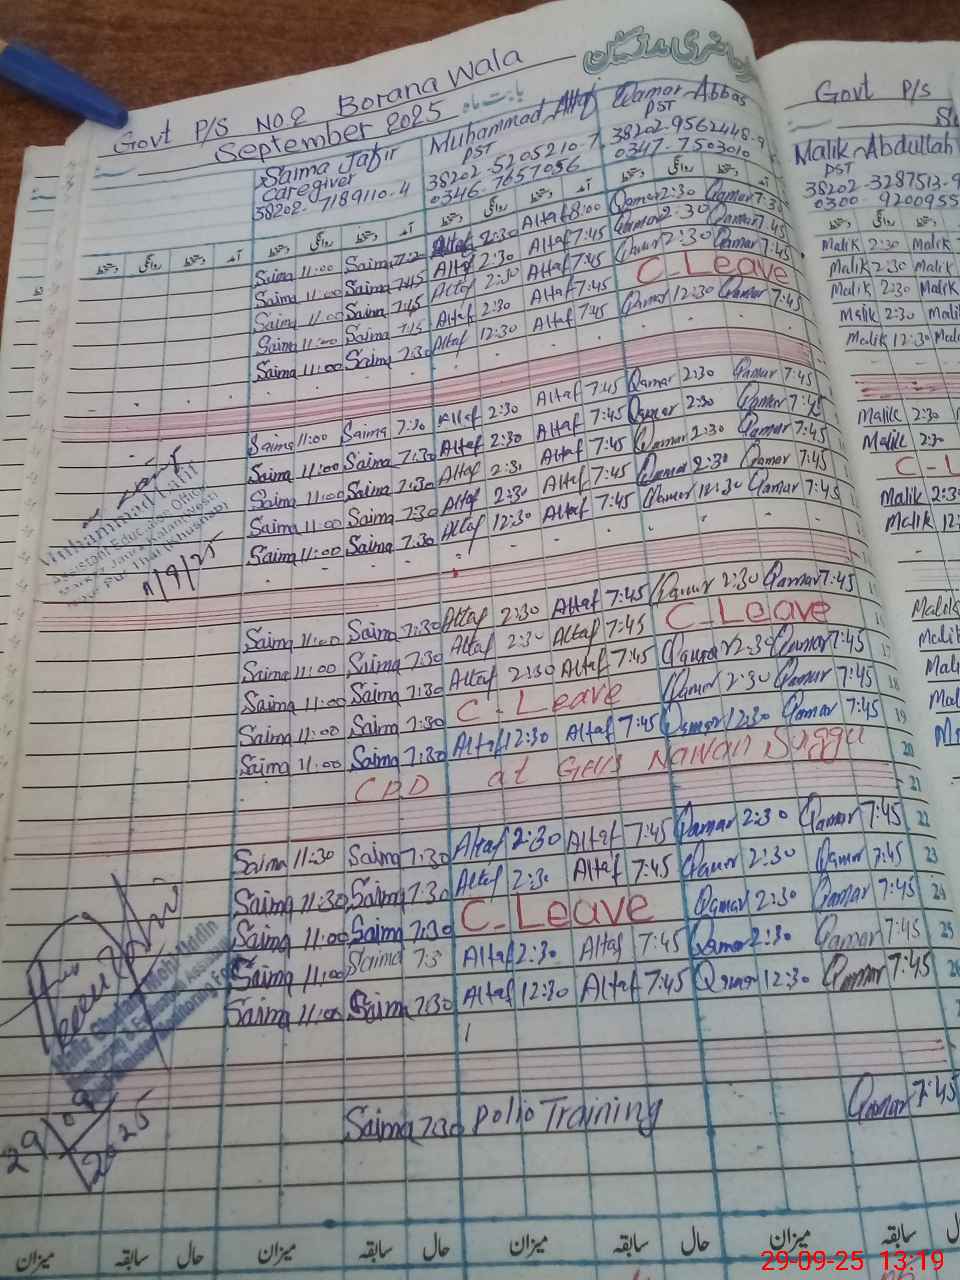 Govt P/S No.2 Borana Wala
September 2025 بابت ماہ
Saima Jafir Muhammad Altaf Qamar Abbas
Caregiver PST PST
38202-7189110-4 38202-5205210-7 38202-9562448-9
0346-7657056 0347-7503010
Saima 11:00 Saima Altaf 2:30 Altaf 8:00 Qamar 2:30 Qamar 7:30
Saima 11:00 Saima 7:45 Altaf 2:30 Altaf 7:45 Qamar 2:30 Qamar 7:45
Saima 11:00 Saima 7:45 Altaf 2:30 Altaf 7:45 Qamar 2:30 Qamar 7:45
Saima 11:00 Saima 7:45 Altaf 2:30 Altaf 7:45 C-Leave
Saima 11:00 Saima 7:30 Altaf 12:30 Altaf 7:45 Qamar 12:30 Qamar 7:45
Saima 11:00 Saima 7:30 Altaf 2:30 Altaf 7:45 Qamar 2:30 Qamar 7:45
Saima 11:00 Saima 7:30 Altaf 2:30 Altaf 7:45 Qamar 2:30 Qamar 7:45
Saima 11:00 Saima 7:30 Altaf 2:30 Altaf 7:45 Qamar 2:30 Qamar 7:45
Saima 11:00 Saima 7:30 Altaf 2:30 Altaf 7:45 Qamar 2:30 Qamar 7:45
Saima 11:00 Saima 7:30 Altaf 12:30 Altaf 7:45 Qamar 12:30 Qamar 7:45
Muhammad Latif
Assistant Education Officer
11/9/25
Saima 11:00 Saima 7:30 Altaf 2:30 Altaf 7:45 Qamar 2:30 Qamar 7:45
Saima 11:00 Saima 7:30 Altaf 2:30 Altaf 7:45 C-Leave
Saima 11:00 Saima 7:30 Altaf 2:30 Altaf 7:45 Qamar 2:30 Qamar 7:45 17
Saima 11:00 Saima 7:30 C-Leave Qamar 2:30 Qamar 7:45 18
Saima 11:00 Saima 7:30 Altaf 12:30 Altaf 7:45 Qamar 12:30 Qamar 7:45 19
CPD at Nawan Sagga 20
21
Saima 11:30 Saima 7:30 Altaf 2:30 Altaf 7:45 Qamar 2:30 Qamar 7:45 22
Saima 11:30 Saima 7:30 Altaf 2:30 Altaf 7:45 Qamar 2:30 Qamar 7:45 23
Saima 11:00 Saima 7:30 C-Leave Qamar 2:30 Qamar 7:45 24
Saima 11:00 Saima 7:3 Altaf 2:30 Altaf 7:45 Qamar 2:30 Qamar 7:45 25
Saima 11:00 Saima 7:30 Altaf 12:30 Altaf 7:45 Qamar 12:30 Qamar 7:45 26
Hafiz Ghulam Mohi Uddin
Monitoring & Evaluation Assistant
29 09 2025
Saima 7:30 Polio Training Qamar 7:45
میزان سابقہ حال میزان سابقہ حال میزان سابقہ حال میزان سابقہ
Govt P/S
Malik Abdullah
PST
38202-3287513-9
0300-9200955
Malik 2:30 Malik
Malik 2:30 Malik
Malik 2:30 Malik
Malik 2:30 Malik
Malik 12:30
Malik 2:30
Malik 2:30
C-L
Malik 2:3
Malik 12:
Malik
Malik
29-09-25 13:19